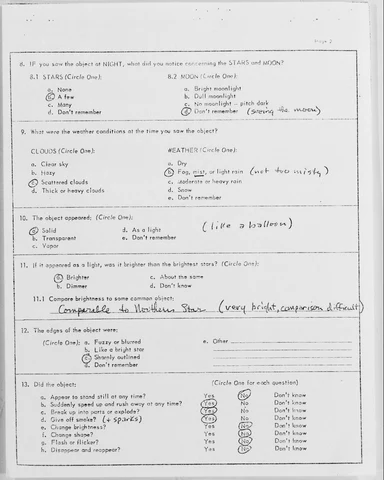 Page 2
8. IF you saw the object at NIGHT, what did you notice concerning the STARS and MOON?
8.1 STARS (Circle One): 8.2 MOON (Circle One):
a. None a. Bright moonlight
b. A few b. Dull moonlight
c. Many c. No moonlight – pitch dark
d. Don't remember d. Don't remember (seeing the moon)
9. What were the weather conditions at the time you saw the object?
CLOUDS (Circle One): WEATHER (Circle One):
a. Clear sky a. Dry
b. Hazy b. Fog, mist, or light rain (not too misty)
c. Scattered clouds c. Moderate or heavy rain
d. Thick or heavy clouds d. Snow
e. Don't remember
10. The object appeared: (Circle One):
a. Solid d. As a light (like a balloon)
b. Transparent e. Don't remember
c. Vapor
11. If it appeared as a light, was it brighter than the brightest stars? (Circle One):
a. Brighter c. About the same
b. Dimmer d. Don't know
11.1 Compare brightness to some common object:
Comparable to Northern Star (very bright, comparison difficult)
12. The edges of the object were:
(Circle One): a. Fuzzy or blurred e. Other
b. Like a bright star
c. Sharply outlined
d. Don't remember
13. Did the object: (Circle One for each question)
a. Appear to stand still at any time? Yes No Don't know
b. Suddenly speed up and rush away at any time? Yes No Don't know
c. Break up into parts or explode? Yes No Don't know
d. Give off smoke? (+ sparks) Yes No Don't know
e. Change brightness? Yes No Don't know
f. Change shape? Yes No Don't know
g. Flash or flicker? Yes No Don't know
h. Disappear and reappear? Yes No Don't know